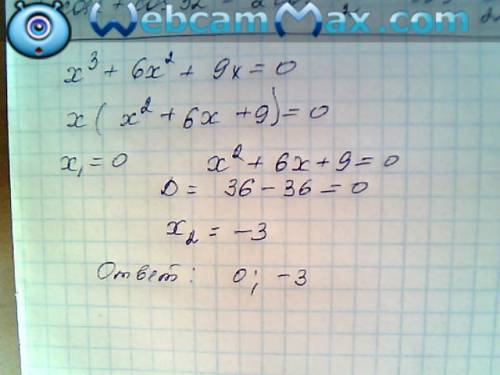 WebcamMax.com
x³ + 6x² + 9x = 0
x( x² + 6x + 9) = 0
x₁ = 0 x² + 6x + 9 = 0
D = 36 - 36 = 0
x₂ = -3
Ответ: 0; -3